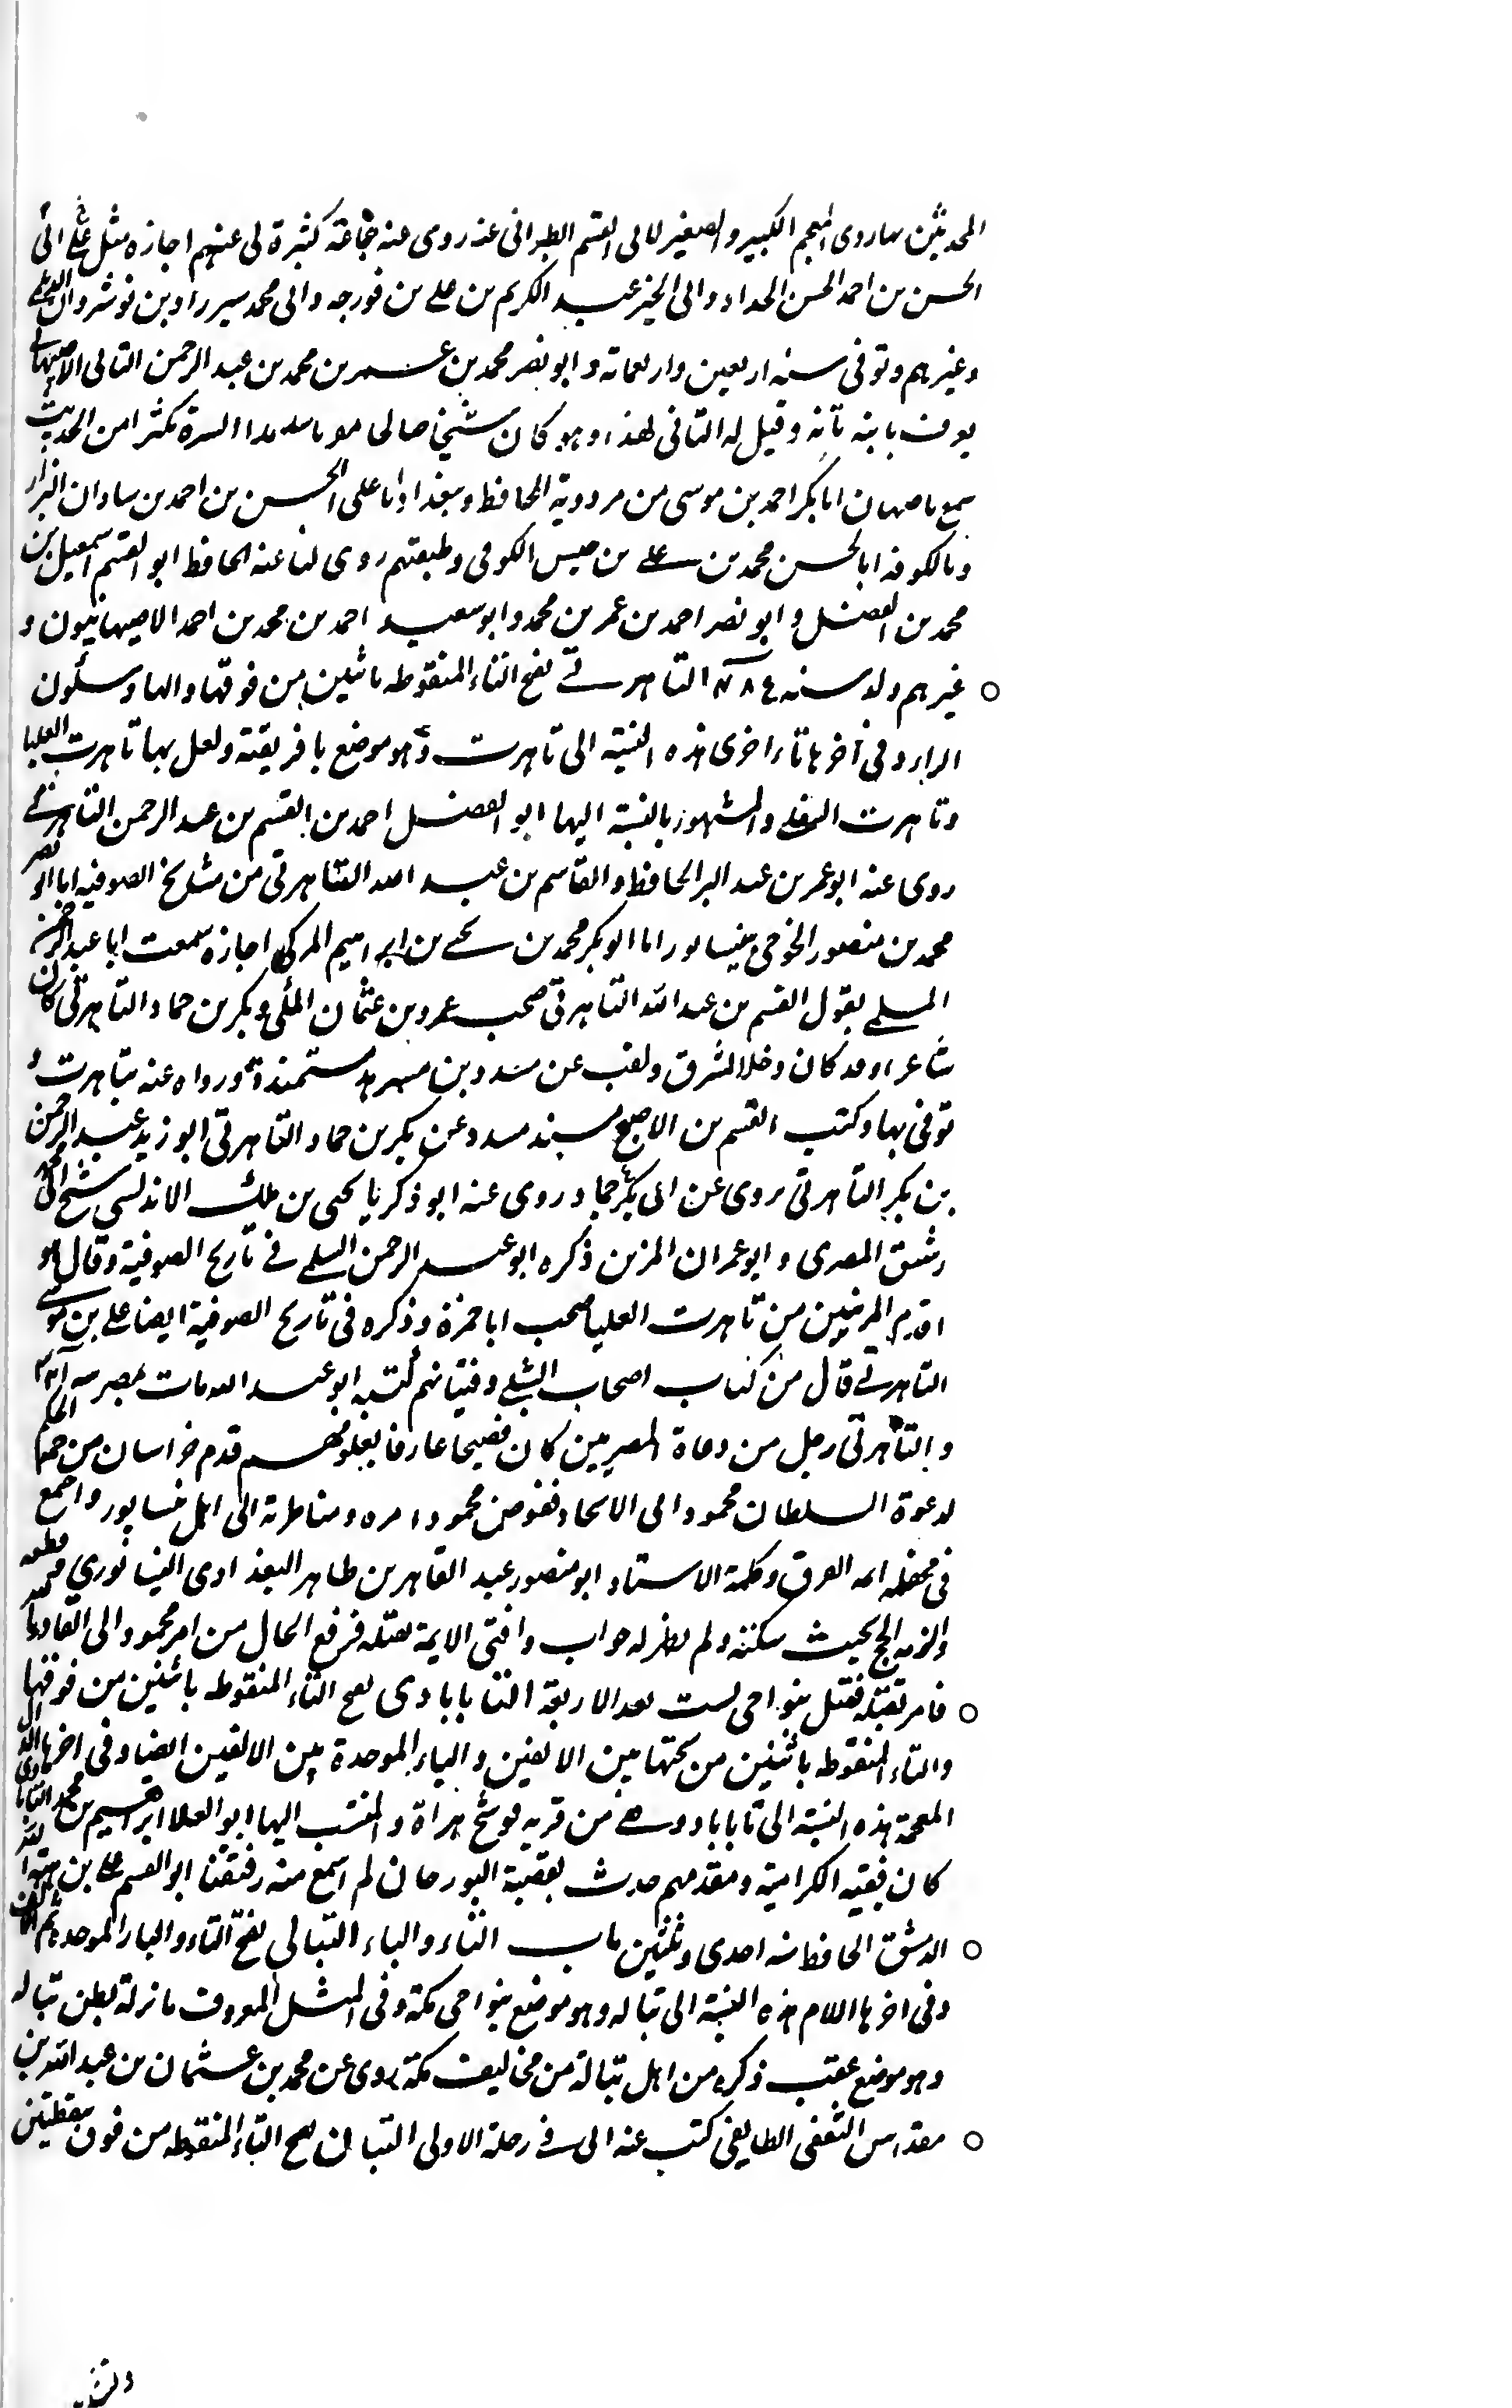 المحدثين بها روى المعجم الكبير والصغير لابى القسم الطبرانى عنه روى عنه جماعة كثيرة لى عنهم اجازه مثل ابى على
الحسن بن احمد الحسن الحداد وابى الخير عبد الكريم بن على بن فورجه وابى محمد بن نوشروان الديلمى
وغيرهم وتوفى سنه اربعين واربعمائة وابو نصر محمد بن عمر بن محمد بن عبد الرحمن التانى الاصبهانى
يعرف بابنه تانه وقيل له التانى لهذا وهو كان شيخا صالحا السيرة مكثرا من الحديث
سمع باصبهان ابا بكر احمد بن موسى بن مردوية الحافظ وببغداد ابا على الحسن بن احمد بن شاذان البزاز
وبالكوفه ابا الحسن محمد بن على بن الكوفى وطبقتهم روى لنا عنه الحافظ ابو القسم اسمعيل بن
محمد بن الفضل وابو نصر احمد بن عمر بن محمد وابو سعيد احمد بن محمد بن احمد الاصبهانيون و
غيرهم ولد سنه التاهرتى بفتح التاء المنقوطه باثنين من فوقها والها وسكون
الراء وفى آخرها تاء اخرى هذه النسبة الى تاهرت وهو موضع بافريقية ولعل بها تاهرت العليا
وتاهرت السفلى والمشهور بالنسبة اليها ابو الفضل احمد بن القسم بن عبد الرحمن التاهرتى
روى عنه ابو عمر بن عبد البر الحافظ والقاسم بن عبد الله التاهرتى من مشايخ الصوفيه انا ابو نصر
محمد بن منصور الحرضى بنيسابور انا ابو بكر محمد بن يحيى بن ابراهيم المزكى اجازه سمعت ابا عبد الرحمن
السلمى يقول القسم بن عبد الله التاهرتى صحب عمرو بن عثمان المكى وبكر بن حماد التاهرتى كان
شاعرا وقد كان دخل الشرق وكتب عن مسدد بن مسرهد مسنده ورواه عنه بتاهرت و
توفى بها وكتب القسم بن الاصبغ مسند مسدد عن بكر بن حماد التاهرتى ابو زيد عبد الرحمن
بن بكر التاهرتى يروى عن ابى بكر حماد روى عنه ابو ذكريا يحيى بن ملك الاندلسى شيخ ابى محمد
رشيق المصرى وابو عمران المزين ذكره ابو عبد الرحمن السلمى فى تاريخ الصوفية وقال هو
اقدم المزينين من تاهرت العليا صحب ابا حمزة وذكره فى تاريخ الصوفية ايضا على بن موسى
التاهرتى قال من كتاب اصحاب الشبلى وفتيانهم كتبه ابو عبد الله مات بمصر سنه
والتاهرتى رجل من دعاة المصريين كان فصيحا عارفا بعلومهم قدم خراسان من جهة الحاكم
لدعوة السلطان محمود الى الالحاد ففوض محمود امره ومناظرته الى اهل نيسابور واجمع
فى محفله ائمه الفرق وكلمه الاستاد ابو منصور عبد القاهر بن طاهر البغدادى النيسابورى وقطعه
والزمه الحج بحيث سكنته ولم يظهر له جواب وافتى الايمة بقتله فرفع الحال من امر محمود الى القادر بالله
فامر بقتله فقتل بنواحى بست بعد الاربعة التايابادى بفتح التاء المنقوطه باثنين من فوقها
والتاء المنقوطه باثنين من تحتها بين الالفين والباء الموحدة بين الالفين ايضا وفى اخرها الدال
المعجمة هذه النسبة الى تاياباد وهى من قريه بوشنج هراة والمنتسب اليها ابو العلا ابرهيم بن محمد التايابادى
كان فقيه الكرامية ومقدمهم حدث بقصبة البوزجان لم اسمع منه رفيقنا ابو القسم على بن هبة الله
الدمشقى الحافظ سنه احدى وثلثين باب التاء والباء التبالى بفتح التاء والباء الموحده بعدهما الالف
وفى اخرها اللام هذه النسبة الى تباله وهو موضع بنواحى مكة وفى المثل المعروف ما نزلت بطن تباله
وهو موضع بقرب ذكره من اهل تبالة من مخاليف مكة يروى عن محمد بن عثمان بن عبد الله بن
مقداس الثقفى الطايفى كتب عنه ابى فى رحلة الاولى التبان بفتح التاء المنقوطه من فوق بنقطتين